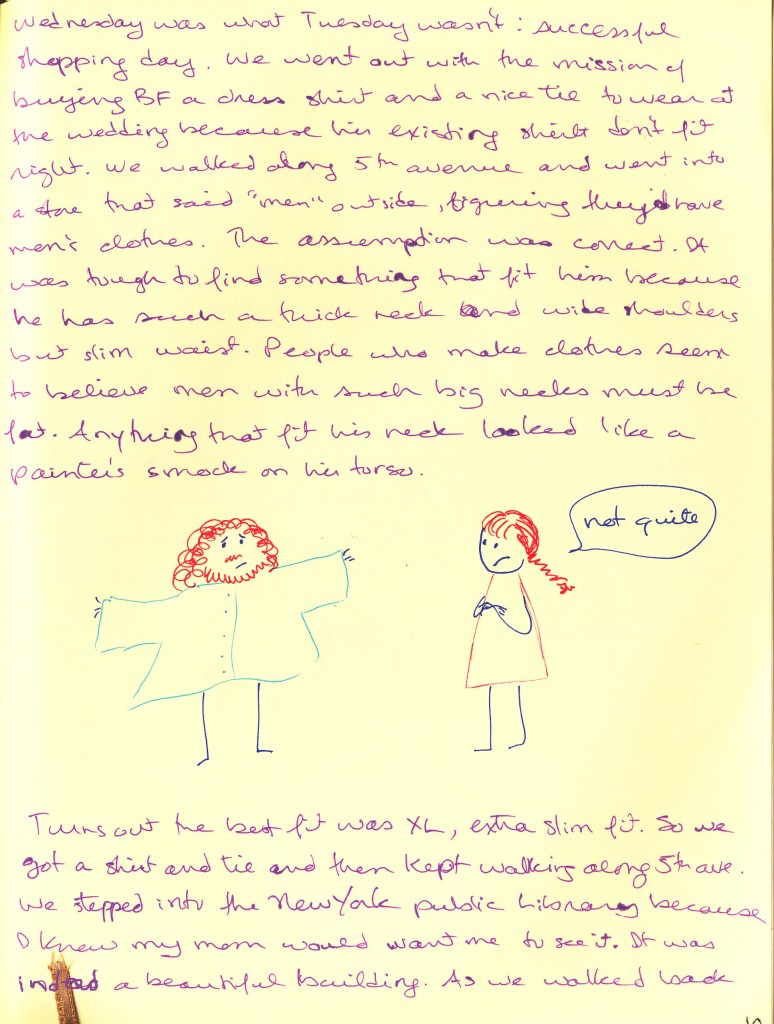 Wednesday was what Tuesday wasn't: successful
shopping day. We went out with the mission of
buying BF a dress shirt and a nice tie to wear at
the wedding because his existing shirts don't fit
right. We walked along 5th avenue and went into
a store that said "men" outside, figuring they'd have
men's clothes. The assumption was correct. It
was tough to find something that fit him because
he has such a thick neck and wide shoulders
but slim waist. People who make clothes seem
to believe men with such big necks must be
fat. Anything that fit his neck looked like a
painter's smock on his torso.
not quite
Turns out the best fit was XL, extra slim fit. So we
got a shirt and tie and then kept walking along 5th ave.
We stepped into the New York public Library because
I knew my mom would want me to see it. It was
indeed a beautiful building. As we walked back